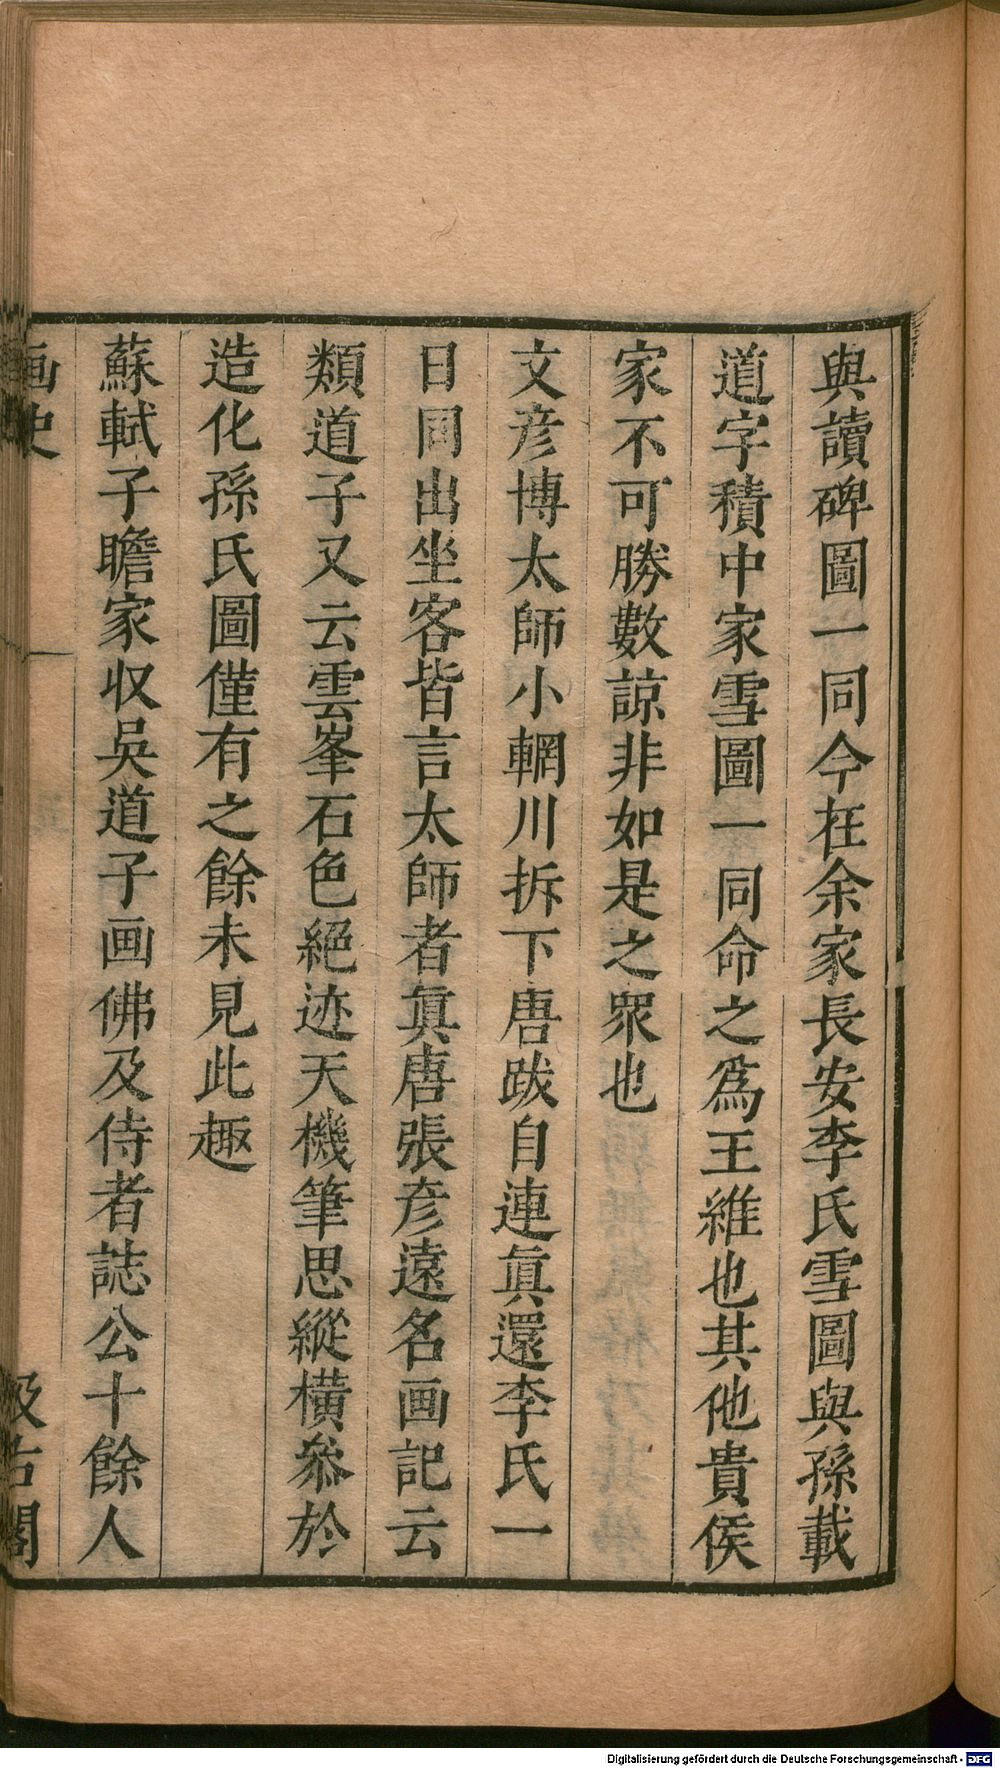 與讀碑圖一同今在余家長安李氏雪圖與孫載
道字積中家雪圖一同命之爲王維也其他貴侯
家不可勝數諒非如是之衆也
文彦博太師小輞川拆下唐跋自連眞還李氏一
日同出坐客皆言太師者眞唐張彦遠名画記云
類道子又云雲峯石色絕迹天機筆思縱橫叅於
造化孫氏圖僅有之餘未見此趣
蘇軾子瞻家収吳道子画佛及侍者誌公十餘人
画史
汲古閣
Digitalisierung gefördert durch die Deutsche Forschungsgemeinschaft - DFG